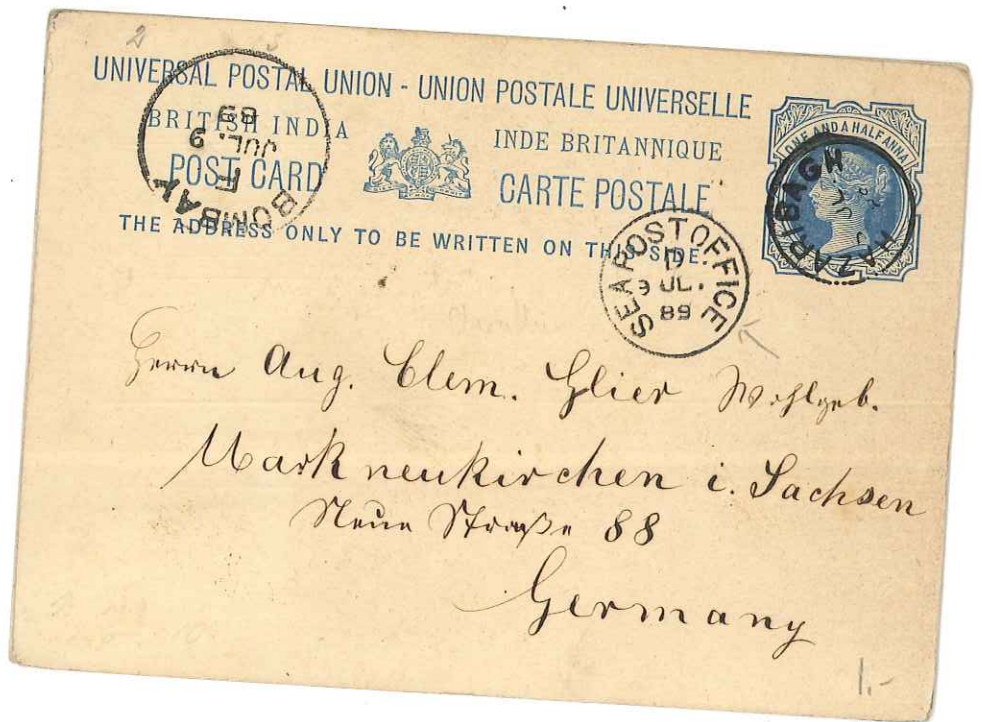 UNIVERSAL POSTAL UNION - UNION POSTALE UNIVERSELLE
BRITISH INDIA
POST CARD
INDE BRITANNIQUE
CARTE POSTALE
THE ADDRESS ONLY TO BE WRITTEN ON THIS SIDE.
ONE AND A HALF ANNA
HAZARIBAGH
BOMBAY
F
JUL. 9
89
SEA POST OFFICE
D
9 JL.
89
Herrn Aug. Clem. Glier Wohlgeb.
Markneukirchen i. Sachsen
Neue Straße 88
Germany
1.-
2